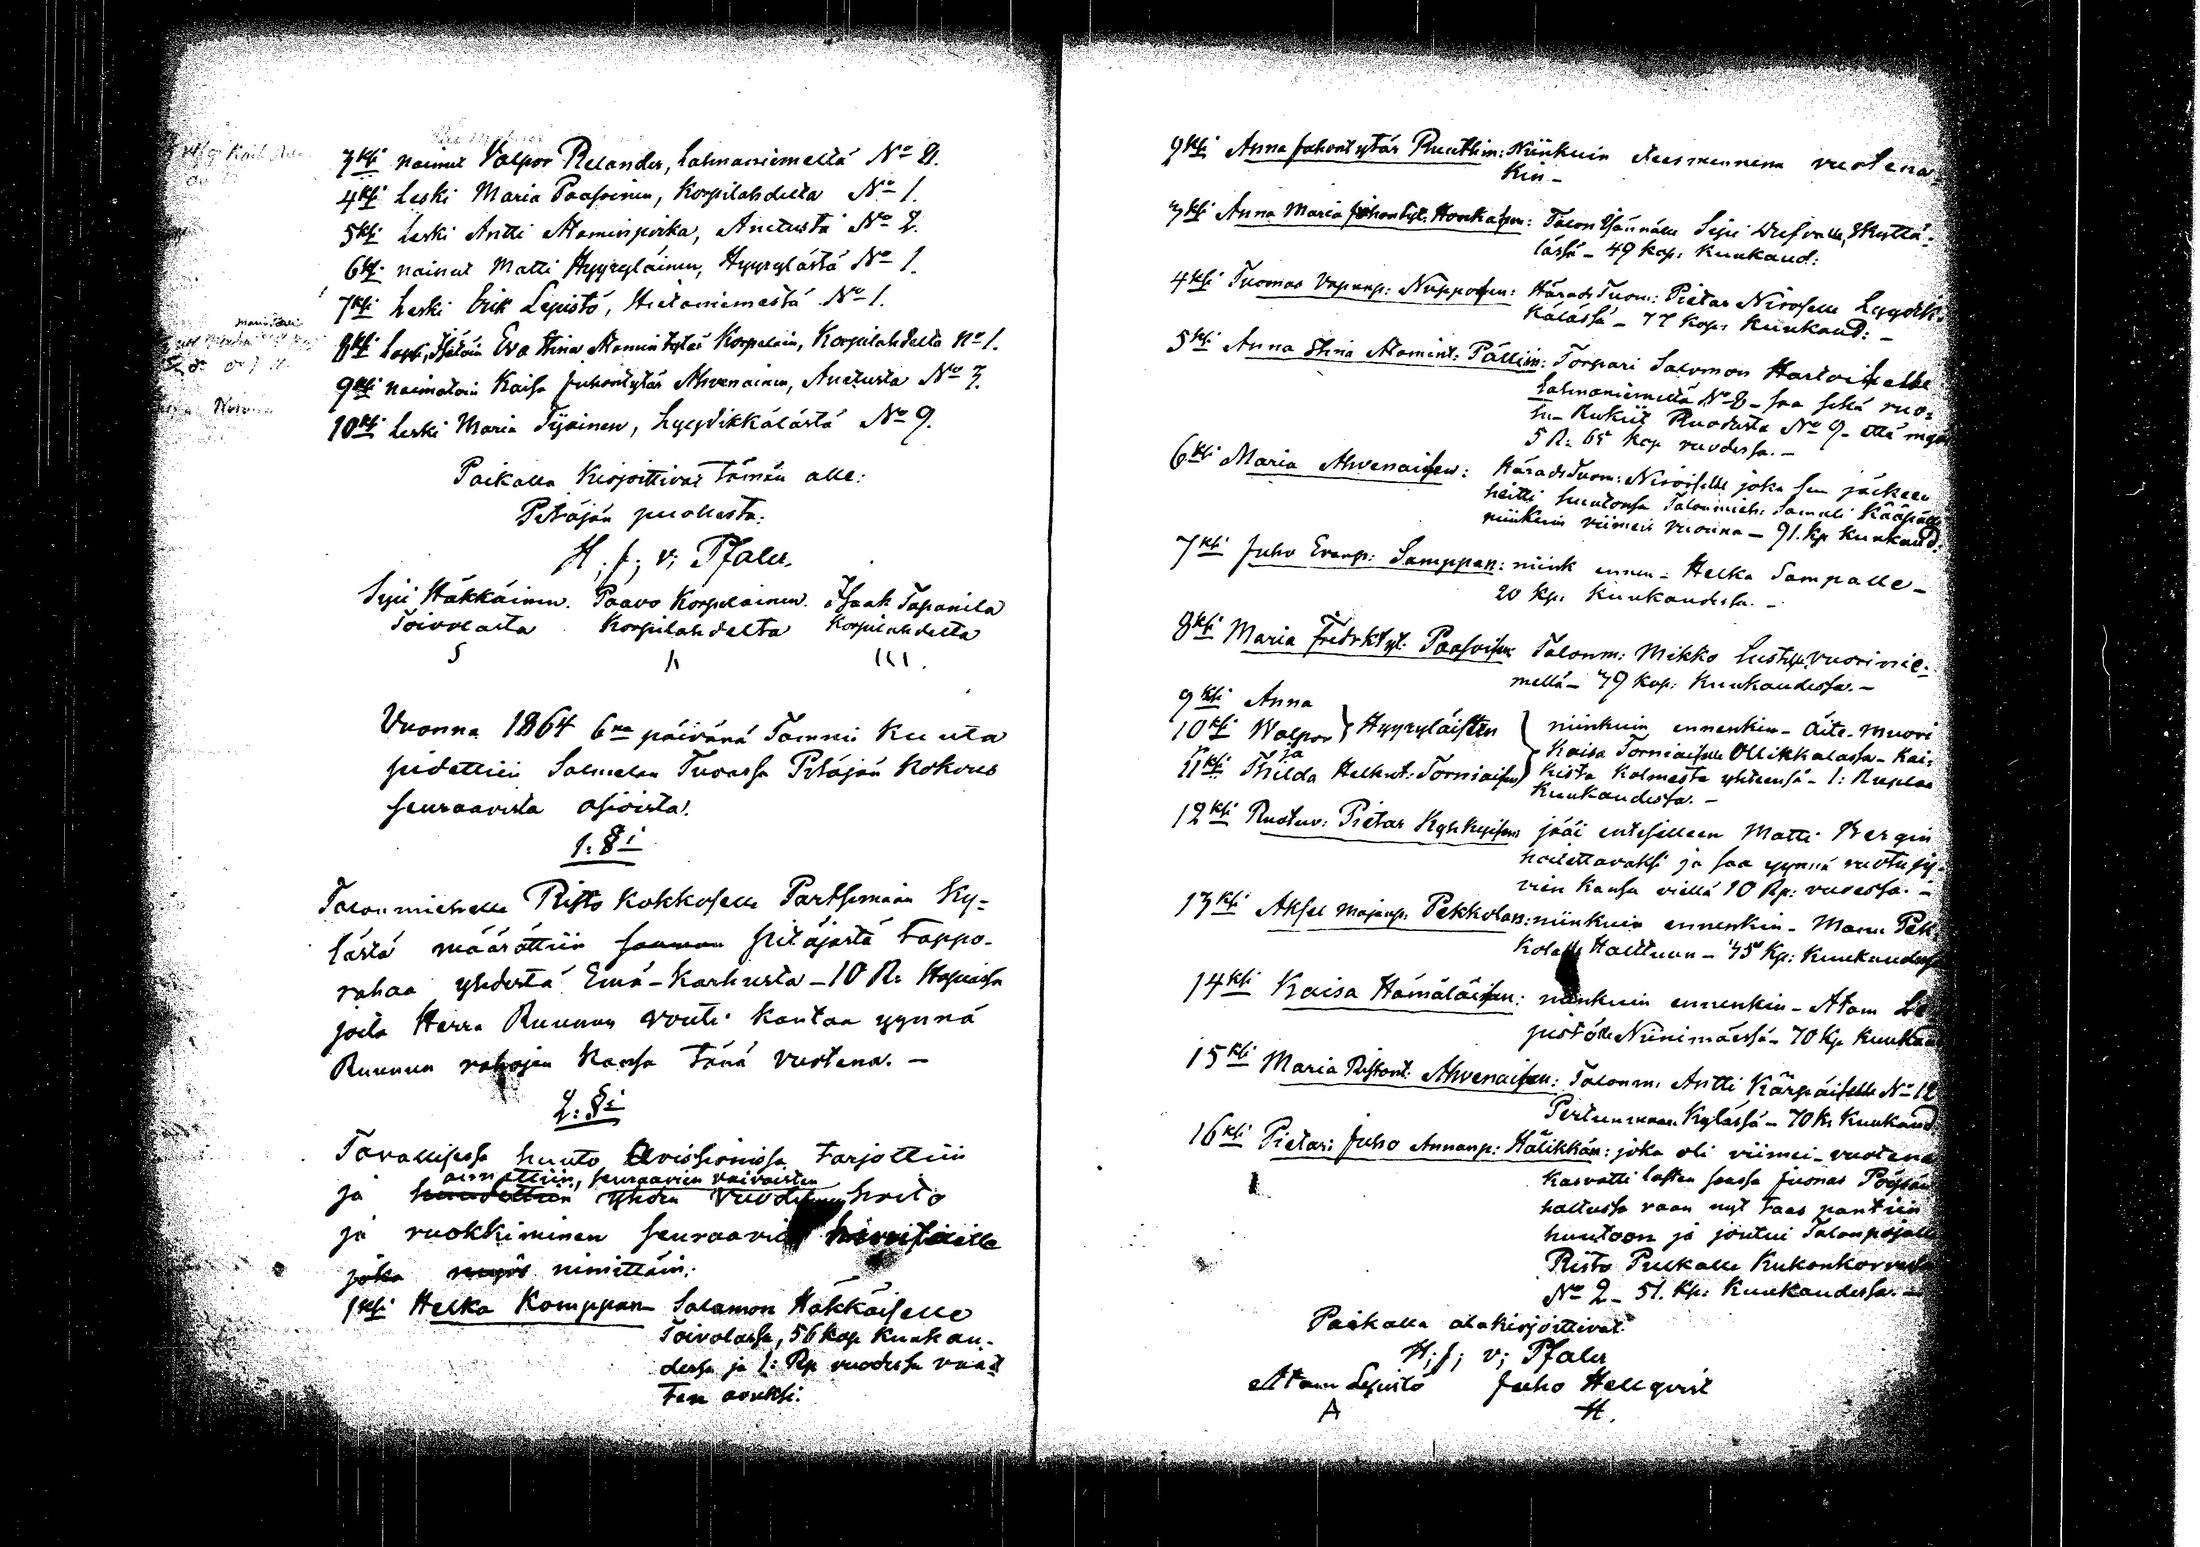 3ksi nainut Valpor Relander, Lahnaniemeltä No 8.
4ksi Leski Maria Paasoinen, Korpilahdelta No 1.
5ksi Leski Antti Ataminpoika, Anetusta No 2.
6ksi nainut Matti Hyyryläinen, Hyyrylästä No 1.
7ksi Leski Erik Lepistö, Hietaniemestä No 1.
8ksi Eva Stina Atamintytär Korpelain, Korpilahdelta No 1.
9ksi naimatoin Kaisa Juhontytär Ahvenainen, Anetusta No 3.
10ksi Leski Maria Tyïnen, Lyydikkälästä No 9.
Paikalla Kirjoittivat tämän alle:
Pitäjän puolesta:
H; f; v; Pfaler.
Sipi Häkkäinen. Paavo Korpelainen. Isaak Tapanila
Toivolasta Korpilahdelta Korpilahdelta
Vuonna 1864 6na päivänä Tammi Kuuta
pidettiin Salmelan Tuvassa Pitäjän Kokous
seuraavista asioista!
1. §i
Talonmiehelle Risto Kokkoselle Partsimaan Ky=
lästä määrättiin saaman pitäjästä tappo-
rahaa yhdestä Emä-Karhusta - 10 R: Hopeissa
joita Herra Ruunun vouti kantaa ynnä
Ruunun rahojen Kanssa tänä vuotena. -
2. §i
Tavallisessa huuto tarjottiin
annettiin, seuraavien vaivaisten
ja huudettiin yhden vuoden hoito
ja ruokkiminen
joka myös nimittäin:
1ksi Helka Komppan Salamon Häkkäiselle
Toivolassa, 56 kop Kuukau-
dessa ja 1: Rp vuodessa vaat
ten avuksi:
2ksi Anna Juhontytär Ruuthin: Niinkuin edesmennenä vuotena-
kin -
3ksi Anna Maria Juhontyt: Honkasen: Talon Ysännälle Sipi
lässä - 49 kop: kuukaud:
4ksi Tuomas Vapunp: Nupposen: Härads Tuom: Pietar Niroselle Lyydik-
kälässä - 77 kop: Kuukaud: -
5ksi Anna Stina Atamint: Pällin: Torpari Salomon Hartoiselle
Lahnaniemellä No 8 - saa sekä ruo=
hu- Rukiit Ruodusta No 9 - että myös
5 R: 65 kop vuodessa. -
6ksi Maria Ahvenaisen: Härads Tuom: Niroiselle joka sen jälkeen
heitti huutonsa Talonmieh: Samuli
niinkuin viimein vuonna - 91. kp kuukaud:
7ksi Juho Evanp: Samppan: niink ennen - Helka Sampalle -
20 kp: kuukaudessa. -
8ksi Maria Fredrktyt: Paasoisen Talonm: Mikko Vuorinie-
mellä - 79 kop: Kuukaudessa. -
9ksi Anna
10ksi Walpor } Hyyryläisten niinkuin ennenkin - Äite-muori
ja Kaisa Torniaiselle Ollikkalassa - Kai-
11ksi Thilda Helkut: Torniaisen kista Kolmesta yhteensä - 1: Ruplaa
Kuukaudessa. -
12ksi Ruotuv: Pietar Kyhkyisen jääi entisilleen Matti Bergin
hoitettavaksi ja saa ynnä ruotujy-
vien Kanssa vielä 10 Rp: vuvessa. -
13ksi Aksel Majanp: Pekkolan: niinkuin ennenkin - Manu Pek-
kolalle Halttuun - 75 Kp: Kuukaudessa
14ksi Kaisa Hämäläisen: niinkuin ennenkin - Atam Le-
pistölle Niinimäessä - 70 Kp Kuukau
15ksi Maria Ristont: Ahvenaisen: Talonm: Antti Kärpäiselle No 12
Pertunmaan Kylässä - 70 K: Kuukaud
16ksi Pietar: Juho Annanp: Hälikkän: joka oli viimei-vuotena
Kasvatti lasten seassa Juonas Pöysän
haltussa vaan nyt taas pantiin
huutoon ja joutui Talonpojalle
Risto Pulkalle Kukonkorvesta
No 2 - 51. kp: Kuukaudessa. -
Paikalla alakirjoittivat
H; f; v; Pfaler
Atam Lepistö Juho Hellqvist
A H.